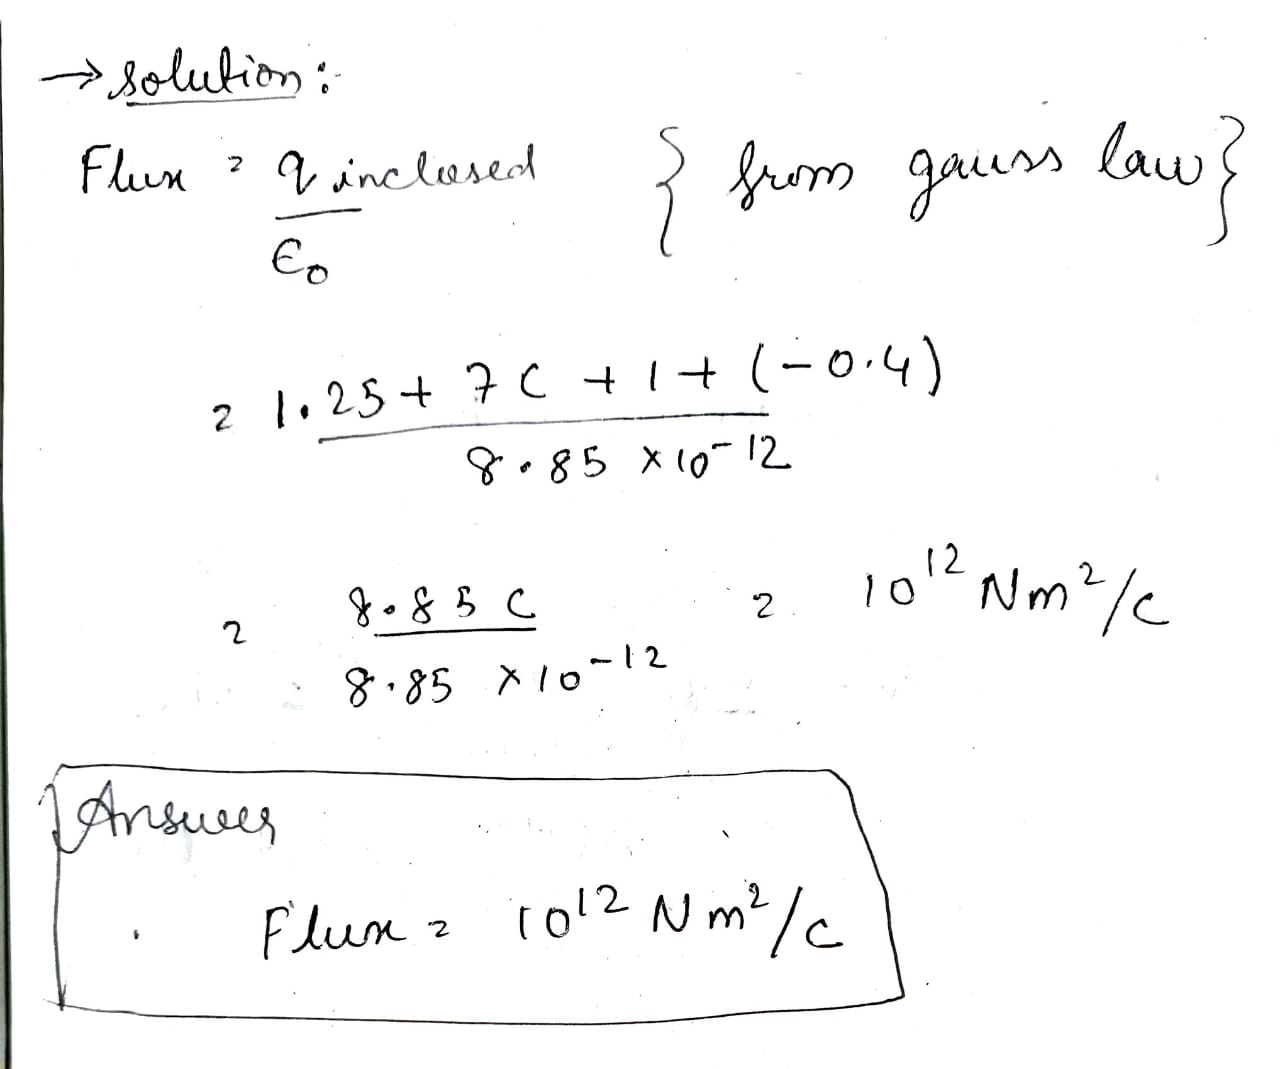 → solution :-
Flux = q inclosed { from gauss law }
ϵ₀
= 1.25 + 7 C + 1 + (-0.4)
8.85 × 10⁻¹²
= 8.85 C = 10¹² Nm²/C
8.85 × 10⁻¹²
Answer
Flux = 10¹² Nm²/C